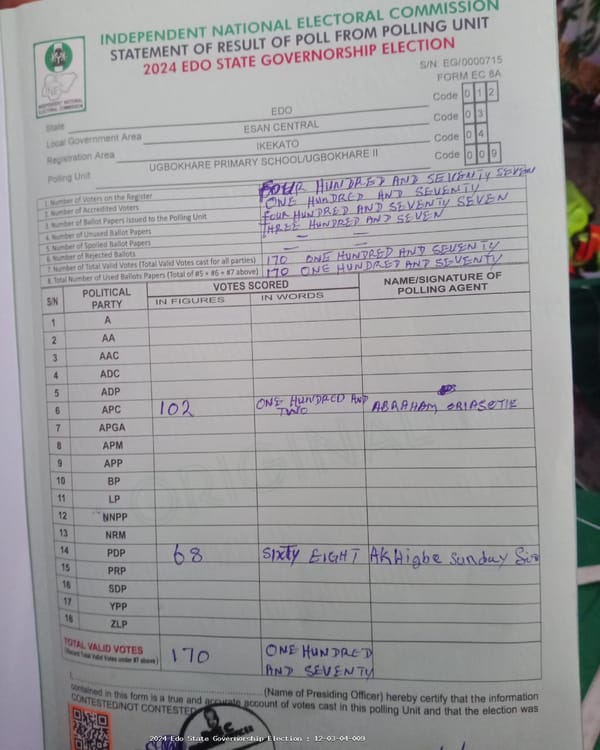 INDEPENDENT NATIONAL ELECTORAL COMMISSION
STATEMENT OF RESULT OF POLL FROM POLLING UNIT
2024 EDO STATE GOVERNORSHIP ELECTION
S/N EG/0000715
FORM EC 8A
INDEPENDENT NATIONAL ELECTORAL COMMISSION
State EDO Code 0 1 2
Local Government Area ESAN CENTRAL Code 0 3
Registration Area IKEKATO Code 0 4
Polling Unit UGBOKHARE PRIMARY SCHOOL/UGBOKHARE II Code 0 0 9
1. Number of Voters on the Register FOUR HUNDRED AND SEVENTY SEVEN
2. Number of Accredited Voters ONE HUNDRED AND SEVENTY
3. Number of Ballot Papers Issued to the Polling Unit FOUR HUNDRED AND SEVENTY SEVEN
4. Number of Unused Ballot Papers THREE HUNDRED AND SEVEN
5. Number of Spoiled Ballot Papers — —
6. Number of Rejected Ballots — —
7. Number of Total Valid Votes (Total Valid Votes cast for all parties) 170 ONE HUNDRED AND SEVENTY
8. Total Number of Used Ballots Papers (Total of #5 + #6 + #7 above) 170 ONE HUNDRED AND SEVENTY
S/N POLITICAL PARTY VOTES SCORED NAME/SIGNATURE OF POLLING AGENT
IN FIGURES IN WORDS
1 A
2 AA
3 AAC
4 ADC
5 ADP
6 APC 102 ONE HUNDRED AND TWO ABRAHAM ORIASOTIE
7 APGA
8 APM
9 APP
10 BP
11 LP
12 NNPP
13 NRM
14 PDP 68 SIXTY EIGHT AKHigbe Sunday
15 PRP
16 SDP
17 YPP
18 ZLP
TOTAL VALID VOTES 170 ONE HUNDRED
(Record Total Valid Votes under #7 above) AND SEVENTY
I, (Name of Presiding Officer) hereby certify that the information
contained in this form is a true and accurate account of votes cast in this polling Unit and that the election was
CONTESTED/NOT CONTESTED
ORIGINAL
2024 Edo State Governorship Election : 12-03-04-009